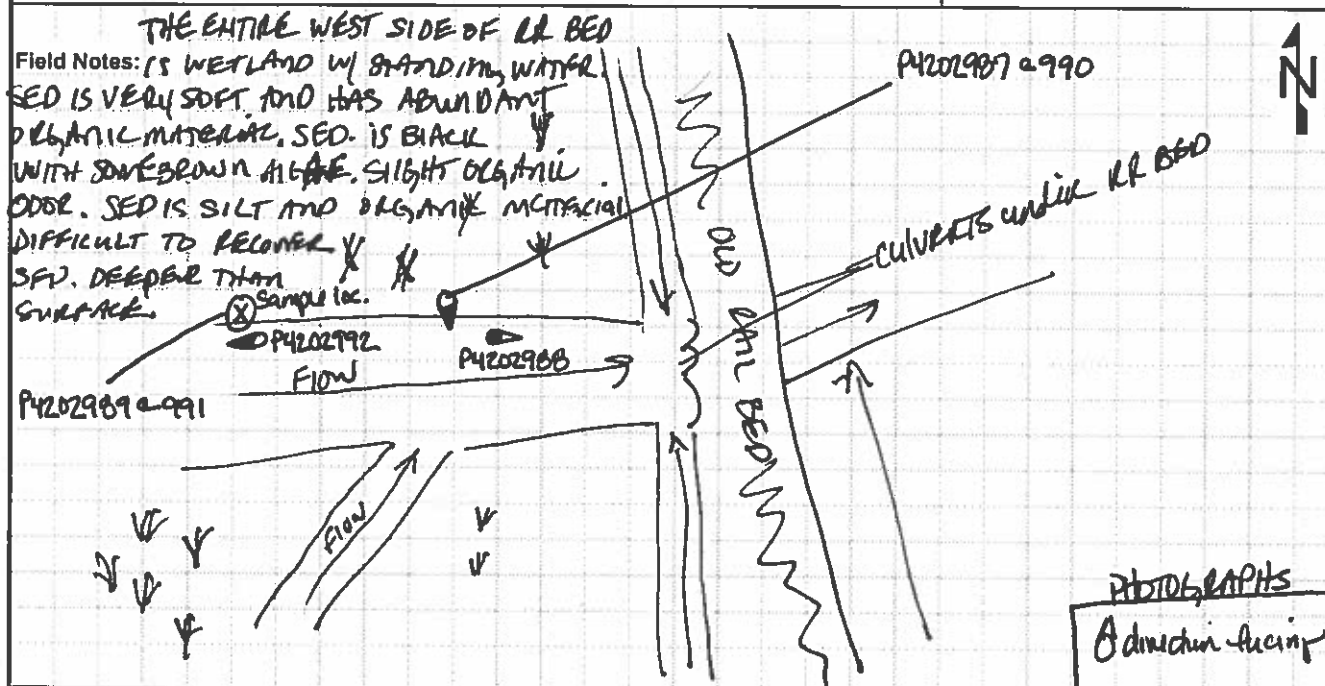 THE ENTIRE WEST SIDE OF RR BED
Field Notes: IS WETLAND W/ STANDING WATER.
SED IS VERY SOFT AND HAS ABUNDANT
ORGANIC MATERIAL. SED. IS BLACK
WITH SOME BROWN ALGAE. SLIGHT ORGANIC
ODOR. SED IS SILT AND ORGANIC MATERIAL
DIFFICULT TO RECOVER
SED. DEEPER THAN
SURFACE.
P4202987 & 990
N
CULVERTS under RR BED
OLD RAIL BED
Sample loc.
P4202992
P4202988
FLOW
P4202989 & 991
FLOW
PHOTOGRAPHS
direction facing